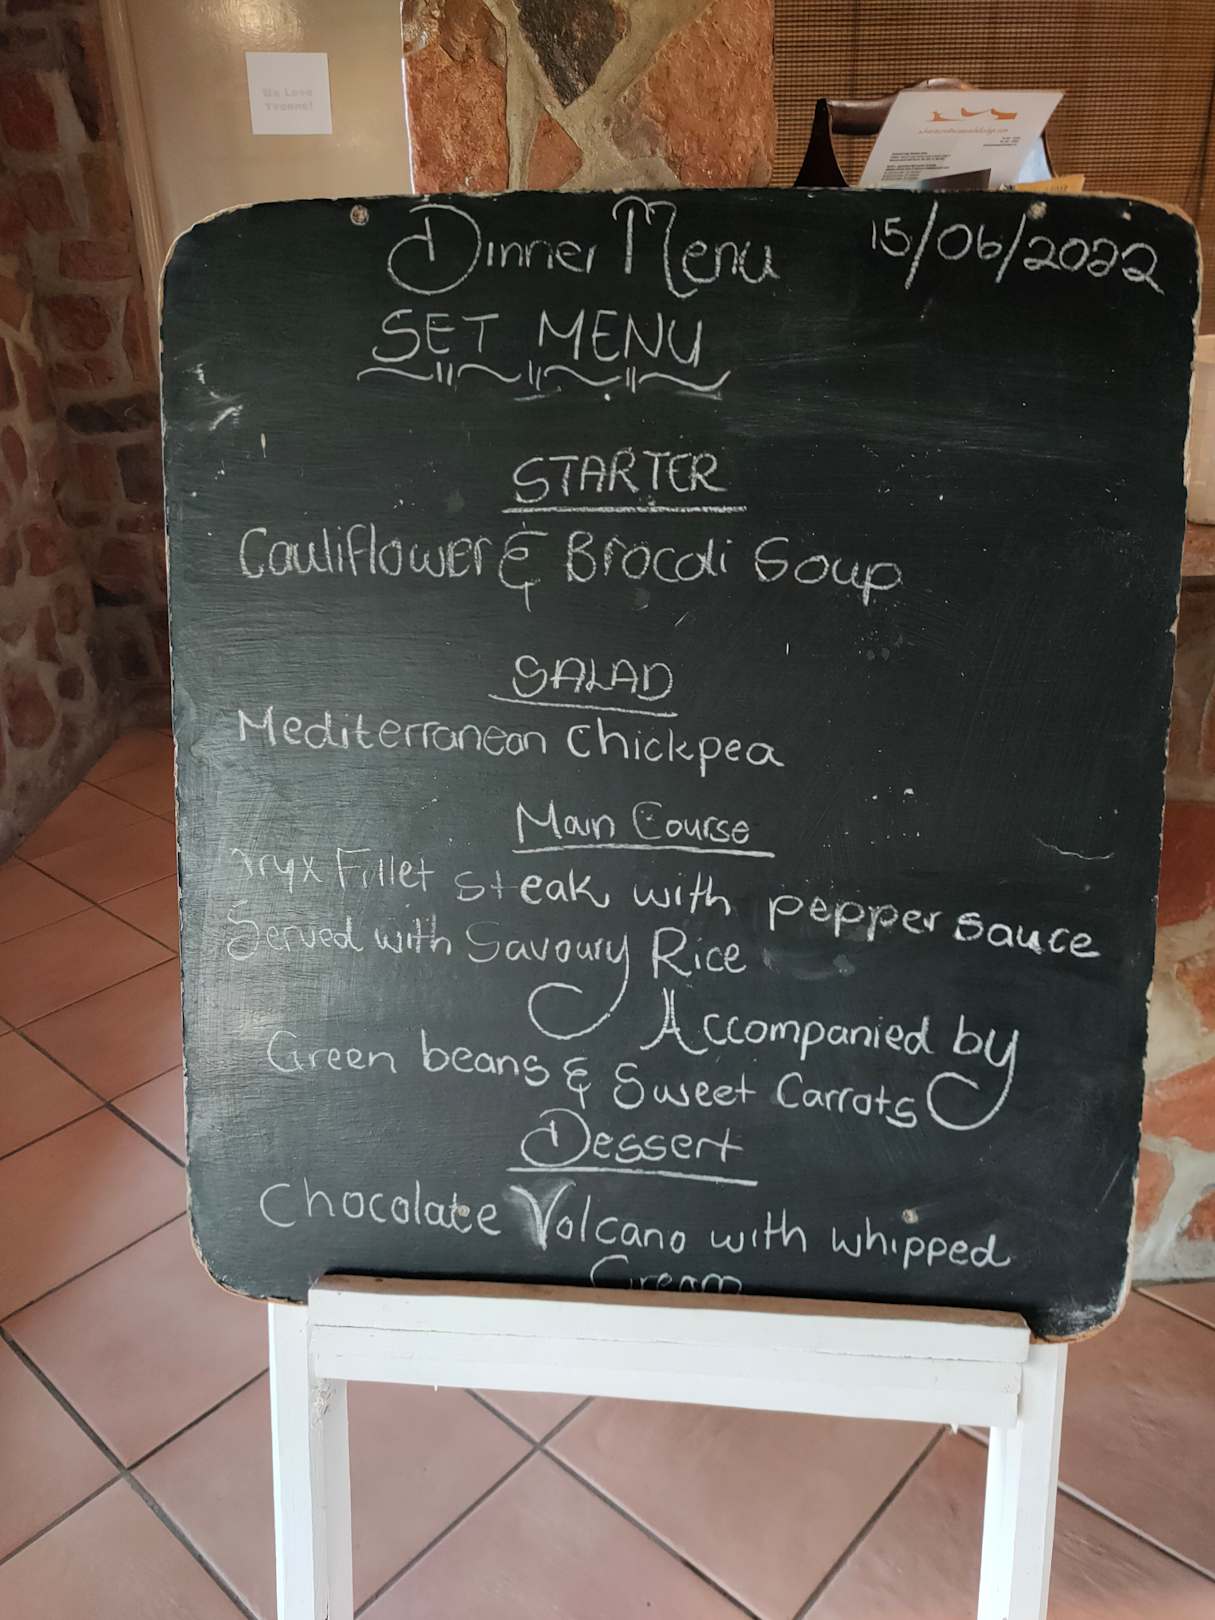 We Love
Yvonne!
Dinner Menu 15/06/2022
SET MENU
STARTER
Cauliflower & Brocoli Soup
SALAD
Mediterranean Chickpea
Main Course
Oryx Fillet steak with pepper sauce
Served with Savoury Rice
Accompanied by
Green beans & Sweet Carrots
Dessert
Chocolate Volcano with whipped
Cream